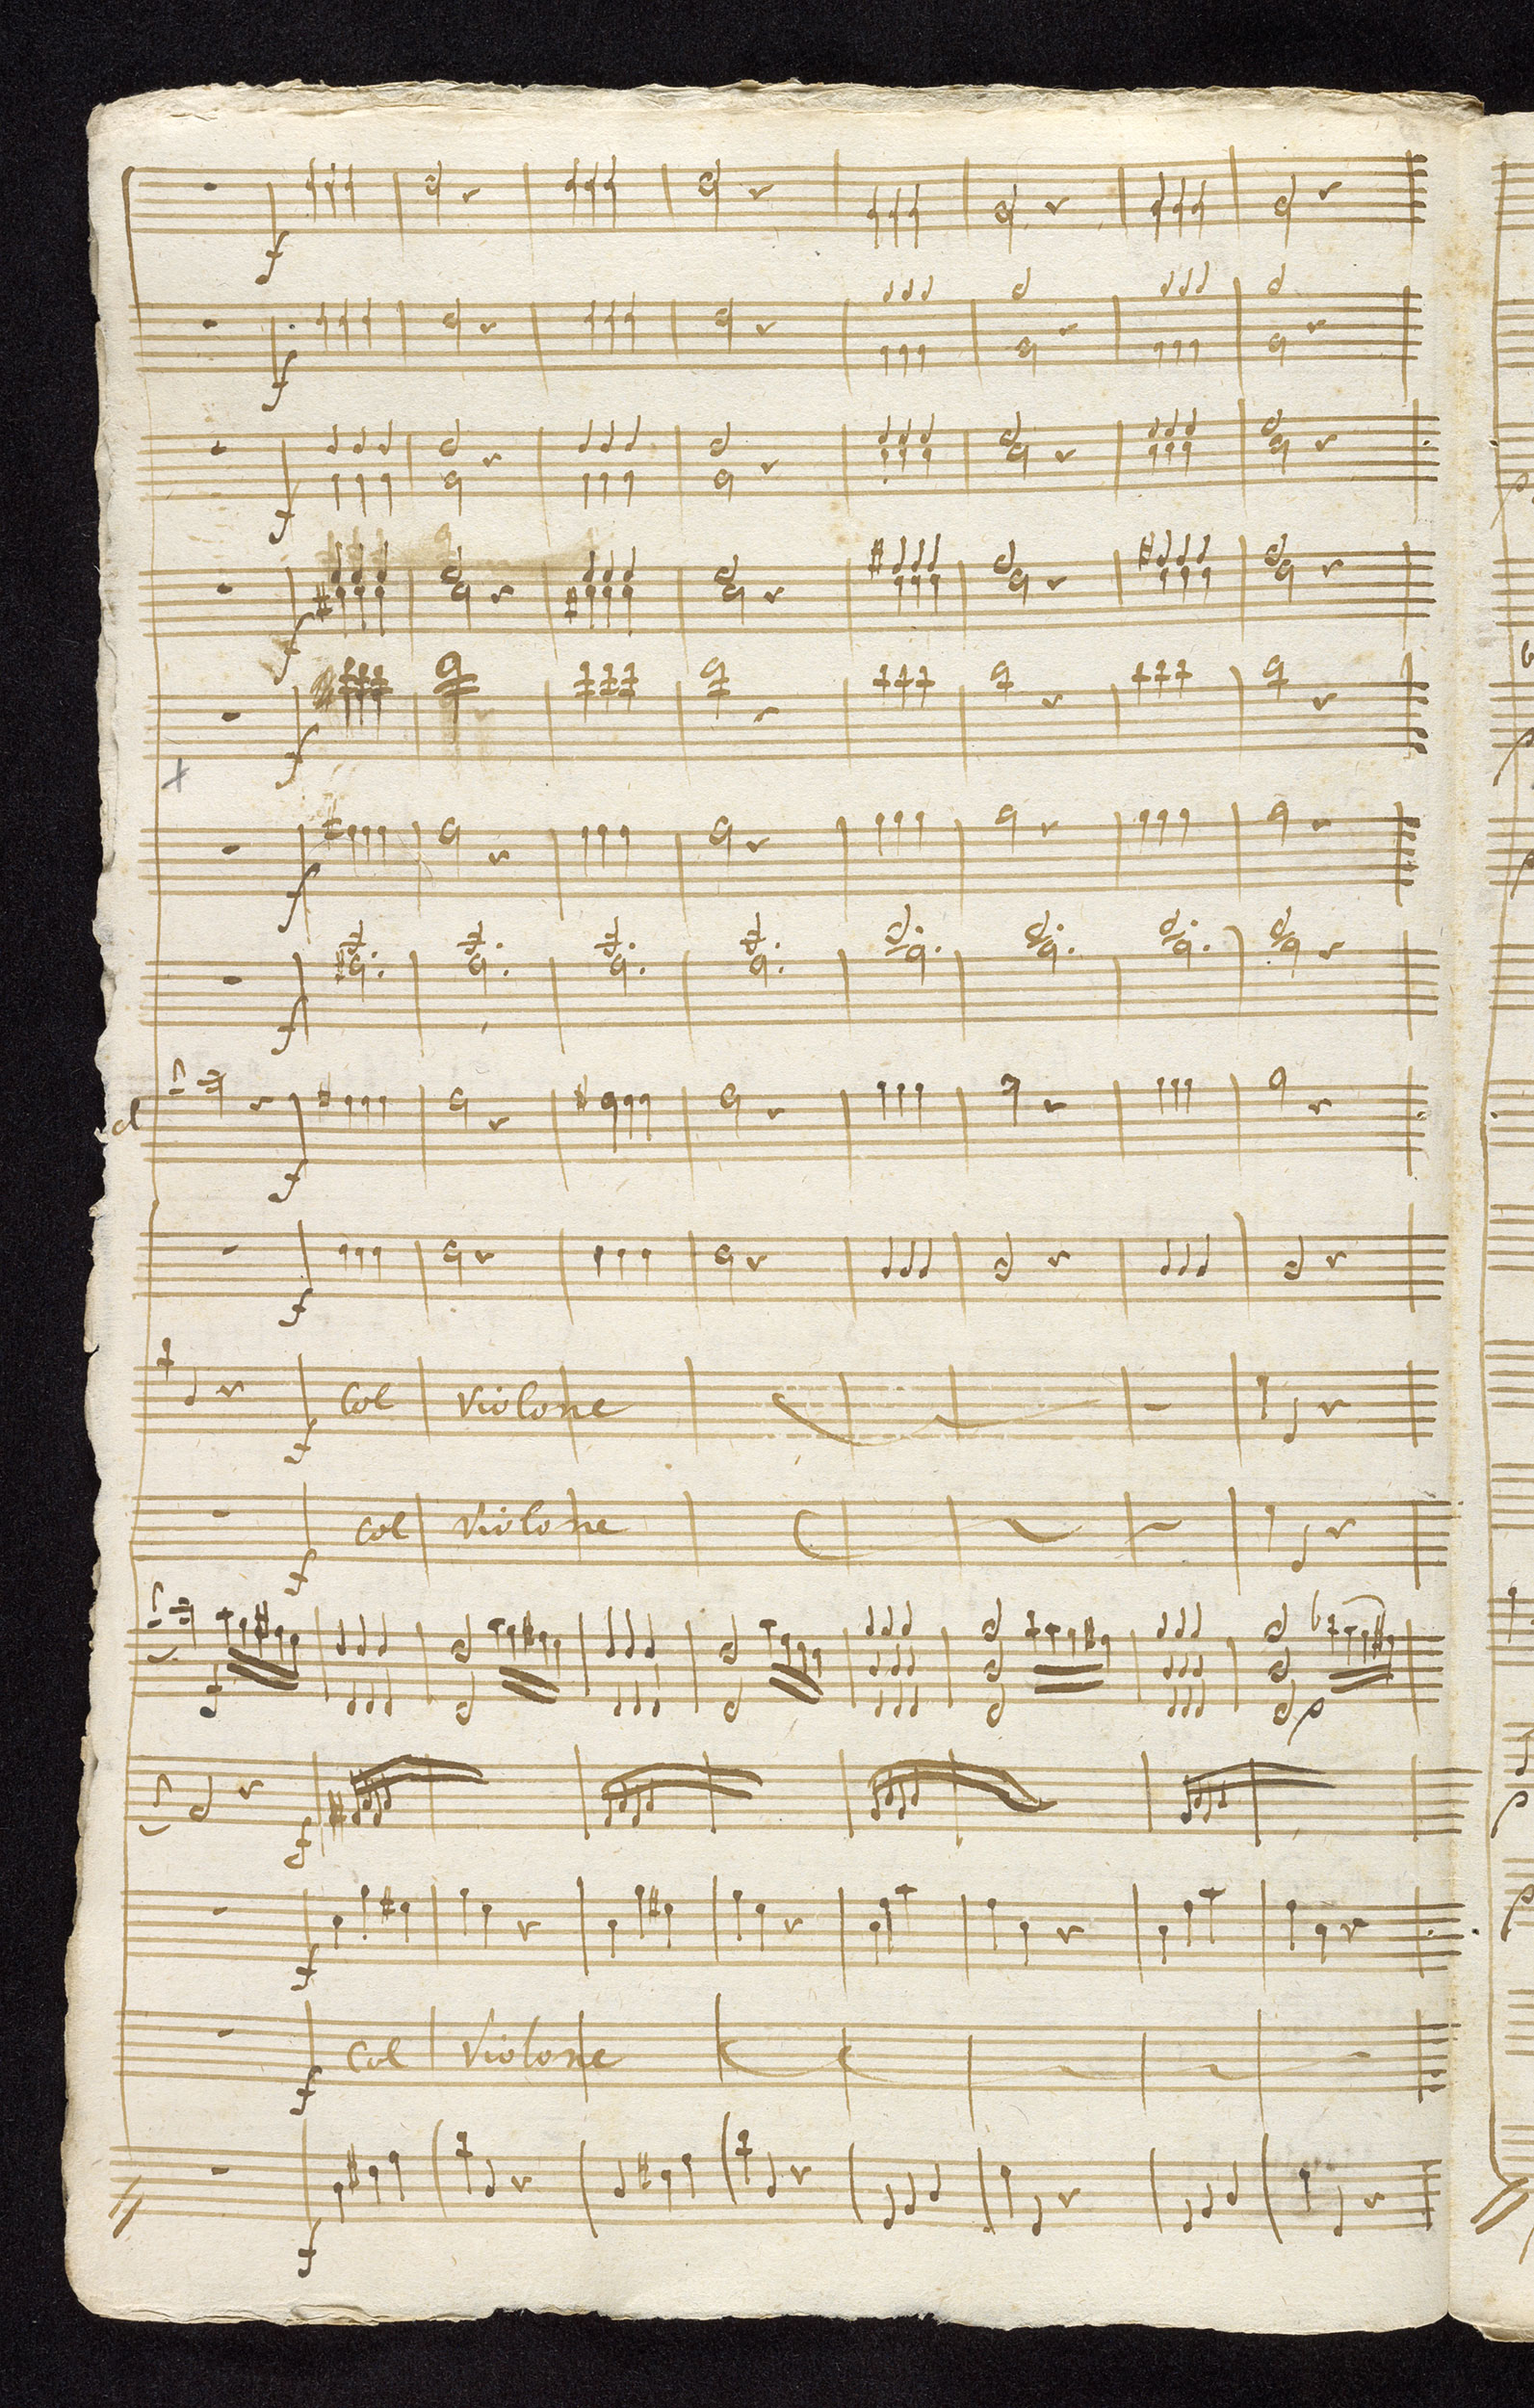 f
f
f
f
f
f
f
d
f
f
f col violone
f col violone
f p
f
f
f col violone
f